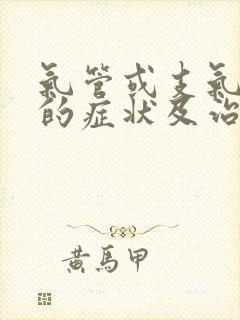 氣管或支氣
的症狀及治
黃馬甲